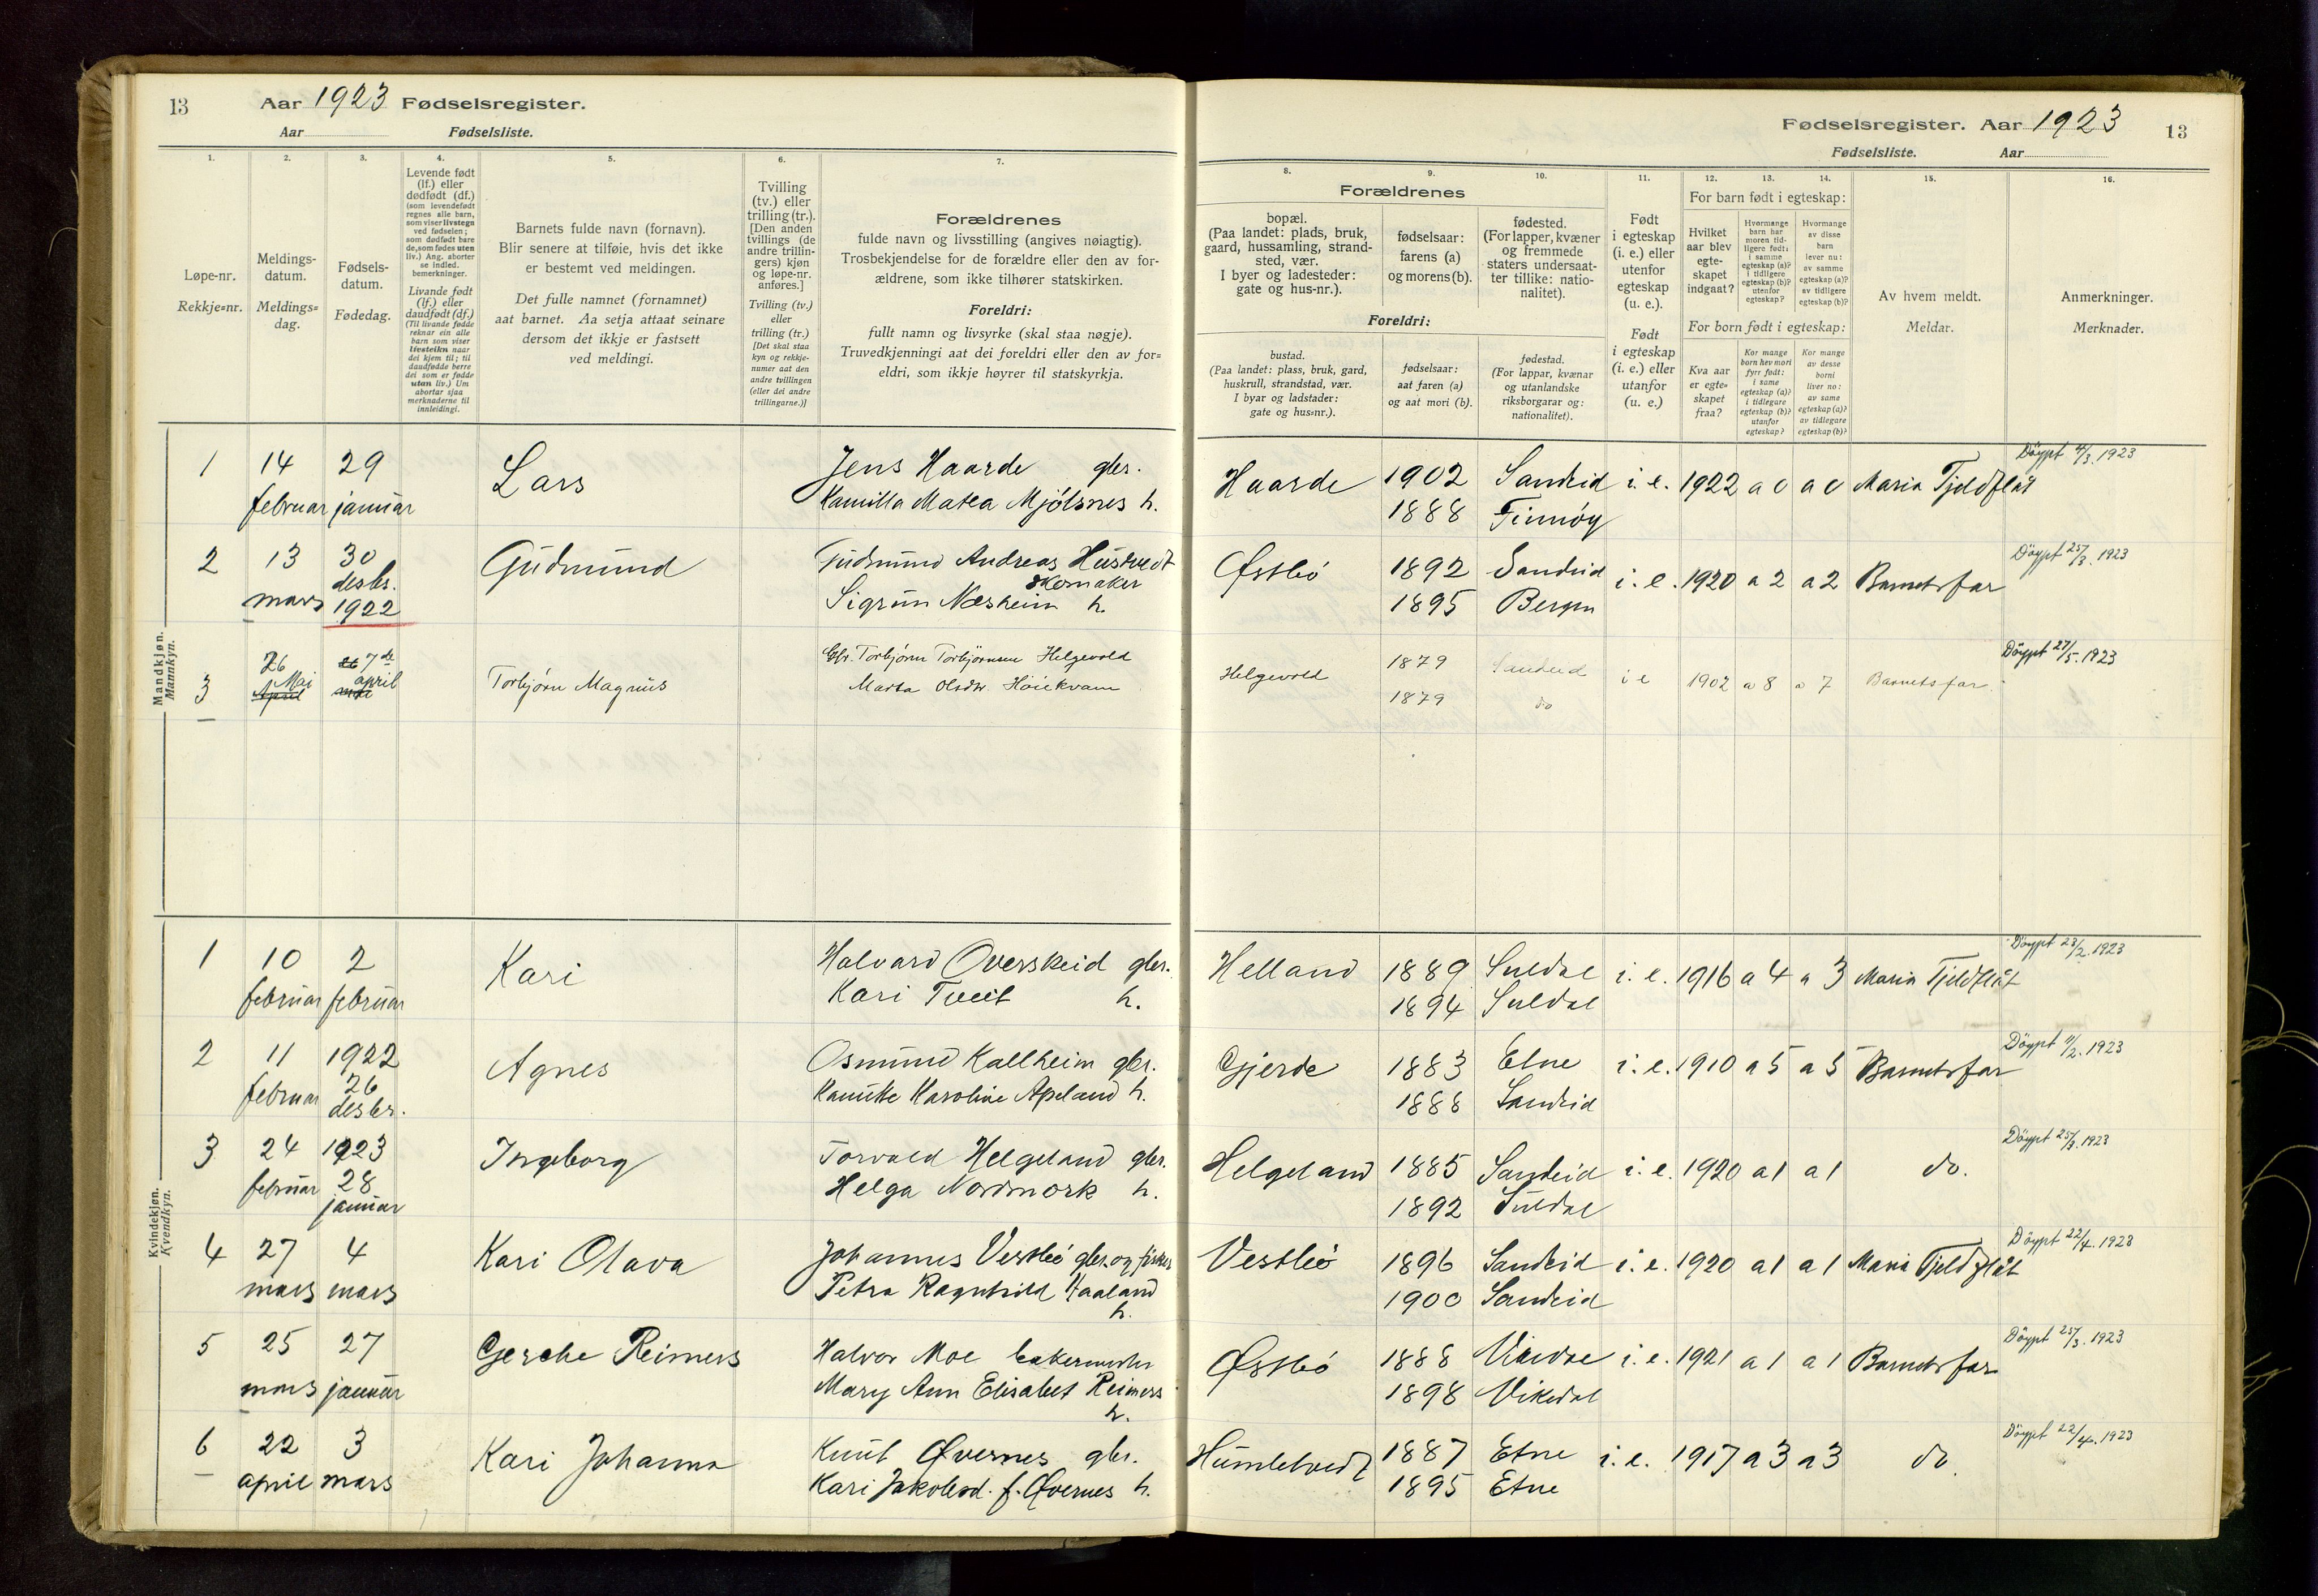 13 Aar 1923 Fødselsregister.
Aar Fødselsliste.
1. 2. 3. 4. 5. 6. 7.
Løpe-nr.
Rekkje=nr.
Meldings-
datum.
Meldings=
dag.
Fødsels-
datum.
Fødedag.
Levende født
(lf.) eller
dødfødt (df.)
(som levendefødt
regnes alle barn,
som viser livstegn
ved fødselen;
som dødfødt bare
de, som fødes uten
liv.) Ang. aborter
se indled.
bemerkninger.
Livande født
(lf.) eller
daudfødt (df.)
(Til livande fødde
reknar ein alle
barn som viser
livsteikn naar
dei kjem til; til
daudfødde berre
dei som er fødde
utan liv.) Um
abortar sjaa
merknaderne til
innleidingi.
Barnets fulde navn (fornavn).
Blir senere at tilføie, hvis det ikke
er bestemt ved meldingen.
Det fulle namnet (fornamnet)
aat barnet. Aa setja attaat seinare
dersom det ikkje er fastsett
ved meldingi.
Tvilling
(tv.) eller
trilling (tr.).
[Den anden
tvillings (de
andre trillin-
gers) kjøn
og løpe-nr.
anføres.]
Tvilling (tv.)
eller
trilling (tr.)
[Det skal staa
kyn og rekkje-
numer aat den
andre tvillingen
(eller dei andre
trillingarne.)]
Forældrenes
fulde navn og livsstilling (angives nøiagtig).
Trosbekjendelse for de forældre eller den av for-
ældrene, som ikke tilhører statskirken.
Foreldri:
fullt namn og livsyrke (skal staa nøgje).
Truvedkjenningi aat dei foreldri eller den av for=
eldri, som ikkje høyrer til statskyrkja.
Mandkjøn.
Mannkyn.
1 14 29 Lars Jens Haarde gbr.
februar januar Kamilla Matea Mjölsnes h.
2 13 30 Gudmund Gudmund Andreas Hustvedt
desbr. skomaker
mars 1922 Sigrun Næsheim h.
3 26 7de Torbjörn Magnus Gbr. Torbjörn Torbjörnsen Helgevold
Mai april Marta Olsdtr. Höiekvam
April
Kvindekjøn.
Kvendkyn.
1 10 2 Kari Halvard Overskeid gbr.
februar februar Kari Tveit h.
2 11 1922 Agnes Osmund Kallheim gbr.
februar 26 Karoline Apeland h.
desbr.
3 24 1923 Ingeborg Torvald Helgeland gbr.
februar 28 Helga Nordmork h.
januar
4 27 4 Kari Olava Johannes Vestbö gbr. og fisker
mars mars Petra Ragnhild Haaland
h.
5 25 27 Gerche Reimers Halvor Moe bakermester
mars januar Mary Ann Elisabet Reimers
h.
6 22 3 Kari Johanna Knut Øvernes gbr.
april mars Kari Jakobsd. f. Øvernes h.
Fødselsregister. Aar 1923 13
Fødselsliste. Aar
8. 9. 10. 11. 12. 13. 14. 15. 16.
Forældrenes
bopæl.
(Paa landet: plads, bruk,
gaard, hussamling, strand-
sted, vær.
I byer og ladesteder:
gate og hus-nr.).
fødselsaar:
farens (a)
og morens (b).
fødested.
(For lapper, kvæner
og fremmede
staters undersaat-
ter tillike: natio-
nalitet).
Foreldri:
bustad.
(Paa landet: plass, bruk, gard,
huskrull, strandstad, vær.
I byar og ladstader:
gate og hus=nr.).
fødselsaar:
aat faren (a)
og aat mori (b).
fødestad.
(For lappar, kvænar
og utanlandske
riksborgarar og:
nationalitet).
Født
i egteskap
(i. e.) eller
utenfor
egteskap
(u. e.).
Født
i egteskap
(i. e.) eller
utanfor
(u. e.)
For barn født i egteskap:
Hvilket
aar blev
egte-
skapet
indgaat?
Hvormange
barn har
moren tid-
ligere født:
i samme
egteskap (a)?
i tidligere
egteskap (b)?
utenfor
egteskap?
Hvormange
av disse
barn
lever nu:
av samme
egteskap (a)?
av tidligere
egteskap (b)?
For born født i egteskap:
Kva aar
er egte=
skapet
fraa?
Kor mange
born hev mori
fyrr født:
i same
egteskap (a)?
i tidlegare
egteskap (b)?
utanfor
egteskap?
Kor mange
av desse
borni
liver no:
av same
egteskap (a)?
av tidlegare
egteskap (b)?
Av hvem meldt.
Meldar.
Anmerkninger.
Merknader.
Haarde 1902 Sandeid i. e. 1922 a 0 a 0 Maria Tjeldflåt Döypt 1923
1888 Finnöy
Østbö 1892 Sandeid i. e. 1920 a 2 a 2 Barnets far Döypt 25/3. 1923
1895 Bergen
Helgevold 1879 Sandeid i e 1902 a 8 a 7 Barnets far. Döypt 27/5. 1923
1879 do
Helland 1889 Suldal i. e. 1916 a 4 a 3 Maria Tjeldflåt Döypt 23/2. 1923
1894 Suldal
Gjerde 1883 Etne i. e. 1910 a 5 a 5 Barnets far Döypt 11/2. 1923
1888 Sandeid
Helgeland 1885 Sandeid i. e. 1920 a 1 a 1 do. Döypt 25/3. 1923
1892 Suldal
Vestbö 1896 Sandeid i. e. 1920 a 1 a 1 Maria Tjeldflåt Döypt 22/4. 1923
1900 Sandeid
Østbö 1888 Vikedal i. e. 1921 a 1 a 1 Barnets far Döypt 25/3. 1923
1898 Vikedal
Humletvedt 1887 Etne i. e. 1917 a 3 a 3 do. Döypt 22/4. 1923
1895 Etne